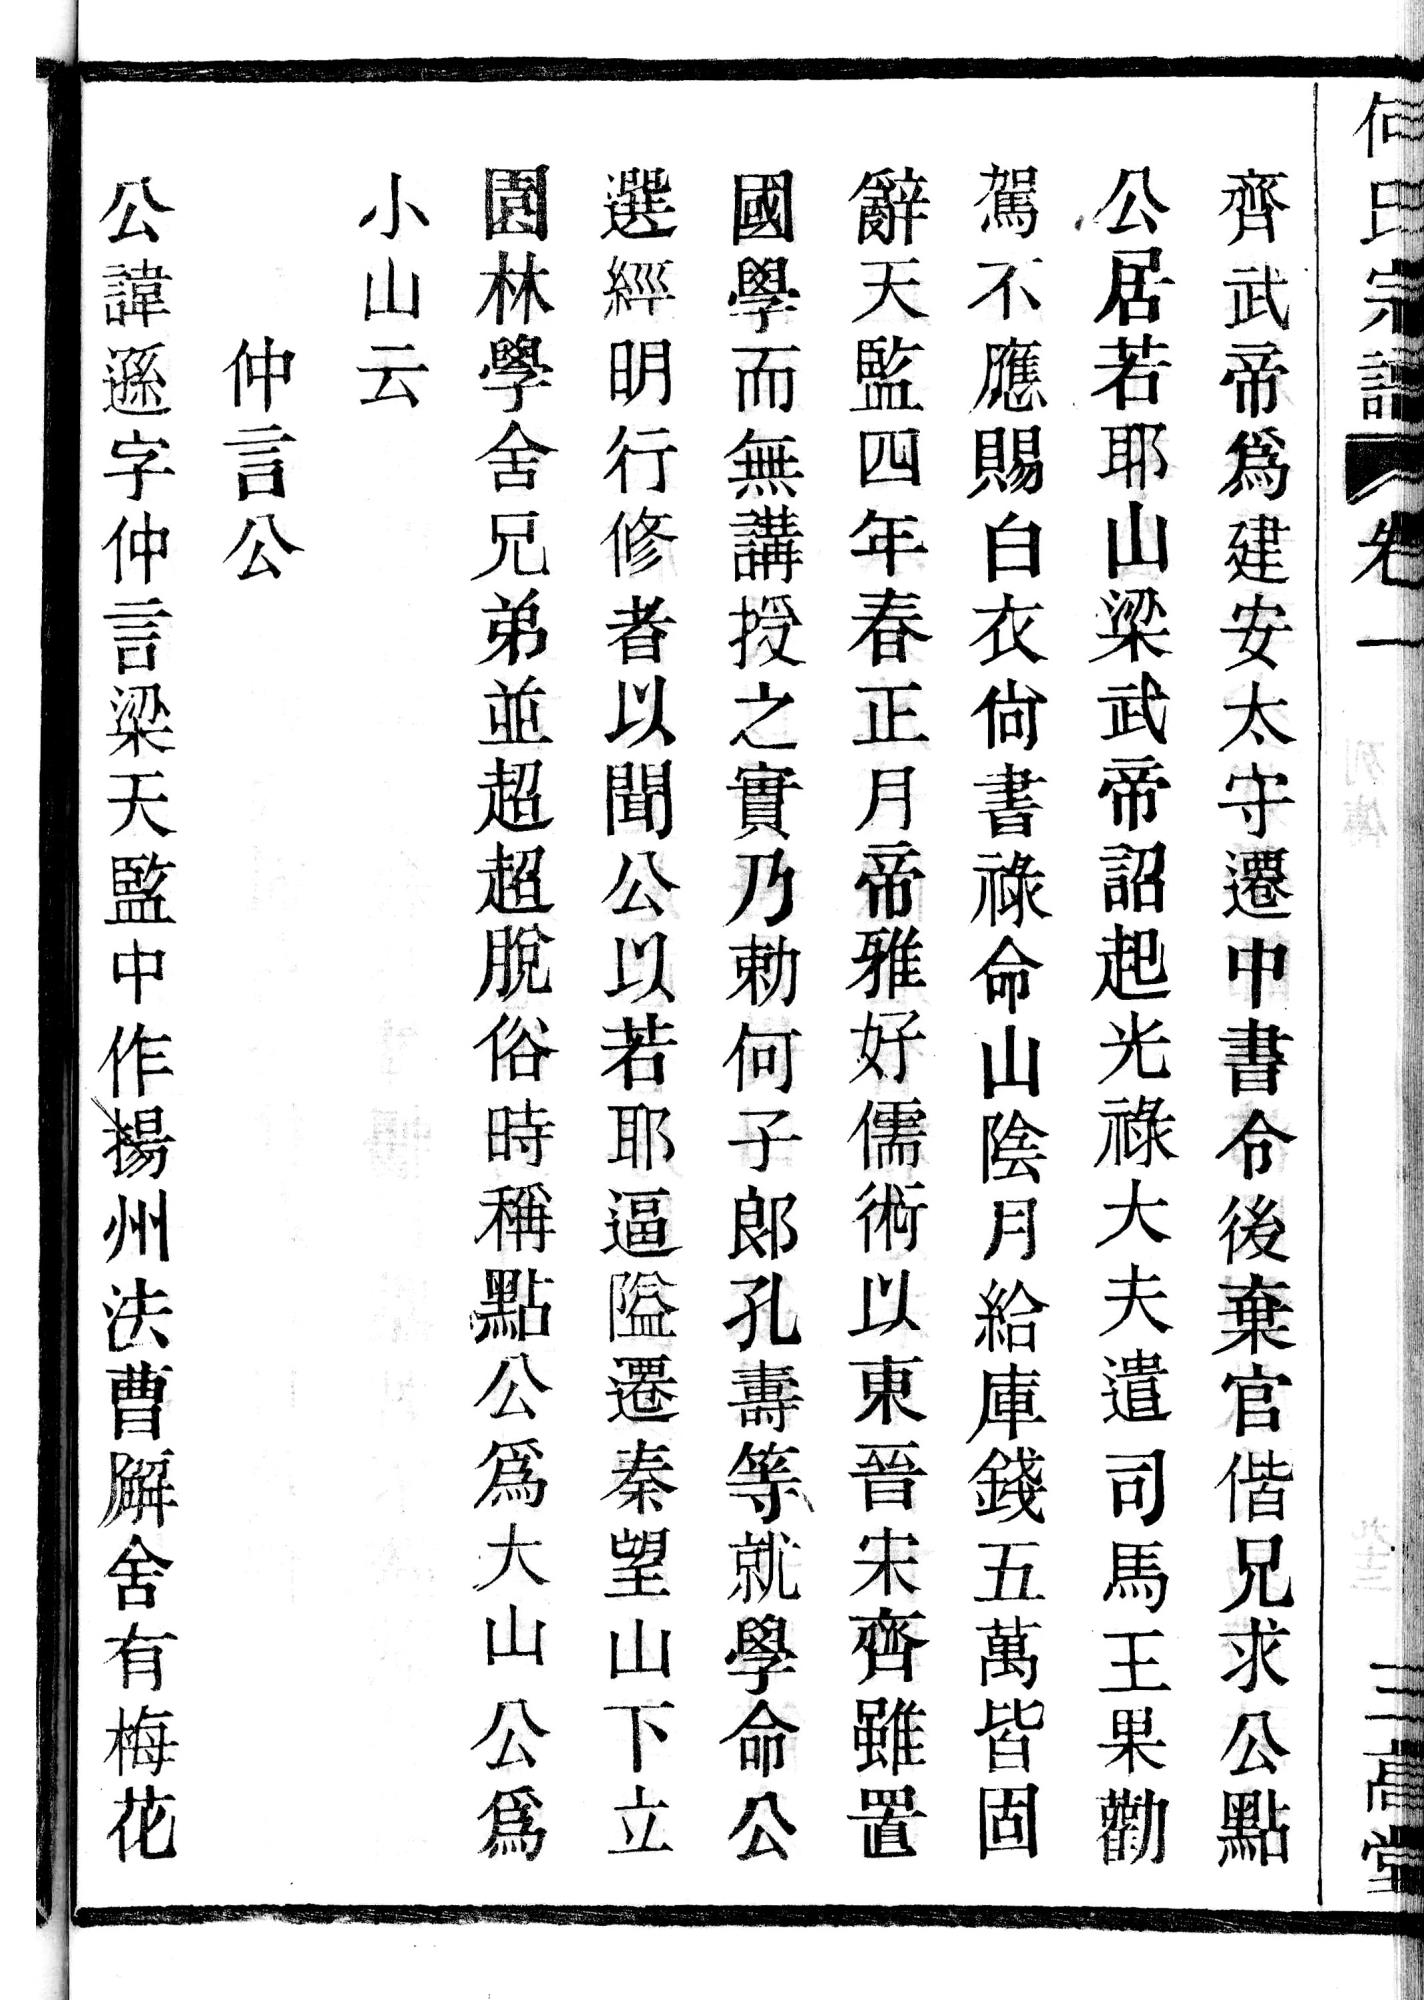 何氏宗譜 卷一 三高堂
齊武帝爲建安太守遷中書令後棄官偕兄求公點
公居若耶山梁武帝詔起光祿大夫遣司馬王果勸
駕不應賜白衣尙書祿命山陰月給庫錢五萬皆固
辭天監四年春正月帝雅好儒術以東晉宋齊雖置
國學而無講授之實乃勅何子郎孔壽等就學命公
選經明行修者以聞公以若耶逼隘遷秦望山下立
園林學舍兄弟並超超脫俗時稱點公爲大山公爲
小山云
仲言公
公諱遜字仲言梁天監中作揚州法曹廨舍有梅花